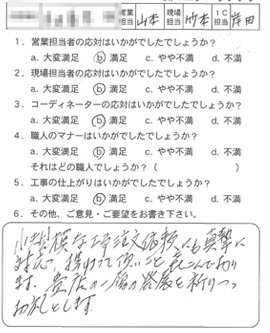 営業担当 山本 現場担当 竹本 IC担当 岸田
1．営業担当者の応対はいかがでしたでしょうか？
a. 大変満足 b 満足 c. やや不満 d. 不満
2．現場担当者の応対はいかがでしたでしょうか？
a. 大変満足 b 満足 c. やや不満 d. 不満
3．コーディネーターの応対はいかがでしたでしょうか？
a. 大変満足 b 満足 c. やや不満 d. 不満
4．職人のマナーはいかがでしたでしょうか？
a. 大変満足 b 満足 c. やや不満 d. 不満
それはどの職人でしょうか？（ ）
5．工事の仕上がりはいかがでしたでしょうか？
a. 大変満足 b 満足 c. やや不満 d. 不満
6．その他、ご意見・ご要望をお書き下さい。
小規模な工事注文依頼にも真摯に
対応 頂いたこと 喜こんで居り
ます。貴店の一層の発展を祈りつつ
御礼とします。